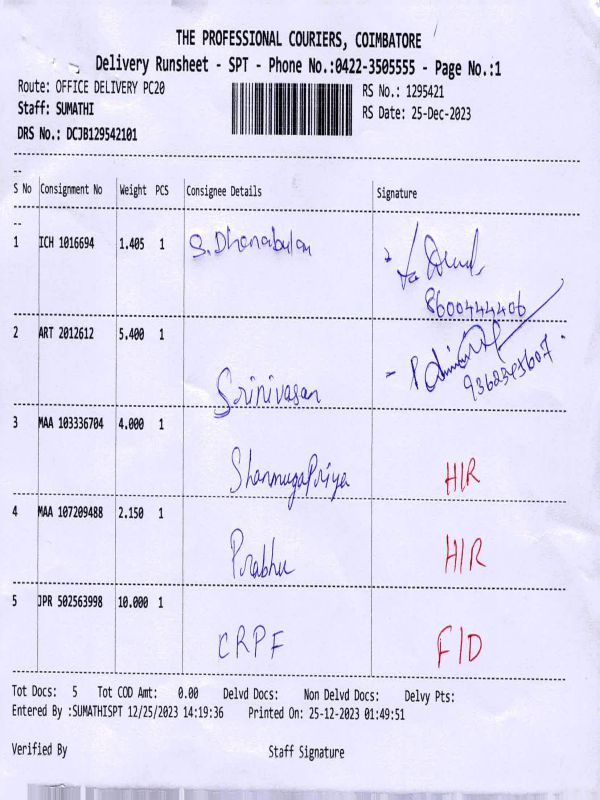 THE PROFESSIONAL COURIERS, COIMBATORE
Delivery Runsheet - SPT - Phone No.:0422-3505555 - Page No.:1
Route: OFFICE DELIVERY PC20 RS No.: 1295421
Staff: SUMATHI RS Date: 25-Dec-2023
DRS No.: DCJB129542101
S No Consignment No Weight PCS Consignee Details Signature
1 ICH 1016694 1.405 1 S. Dhanabulan
8600444406
2 ART 2012612 5.400 1
Srinivasan
3 MAA 103336704 4.000 1
ShanmugaPriya HIR
4 MAA 107209488 2.150 1
Prabhu HIR
5 JPR 502563998 10.000 1
CRPF F/D
Tot Docs: 5 Tot COD Amt: 0.00 Delvd Docs: Non Delvd Docs: Delvy Pts:
Entered By :SUMATHISPT 12/25/2023 14:19:36 Printed On: 25-12-2023 01:49:51
Verified By Staff Signature